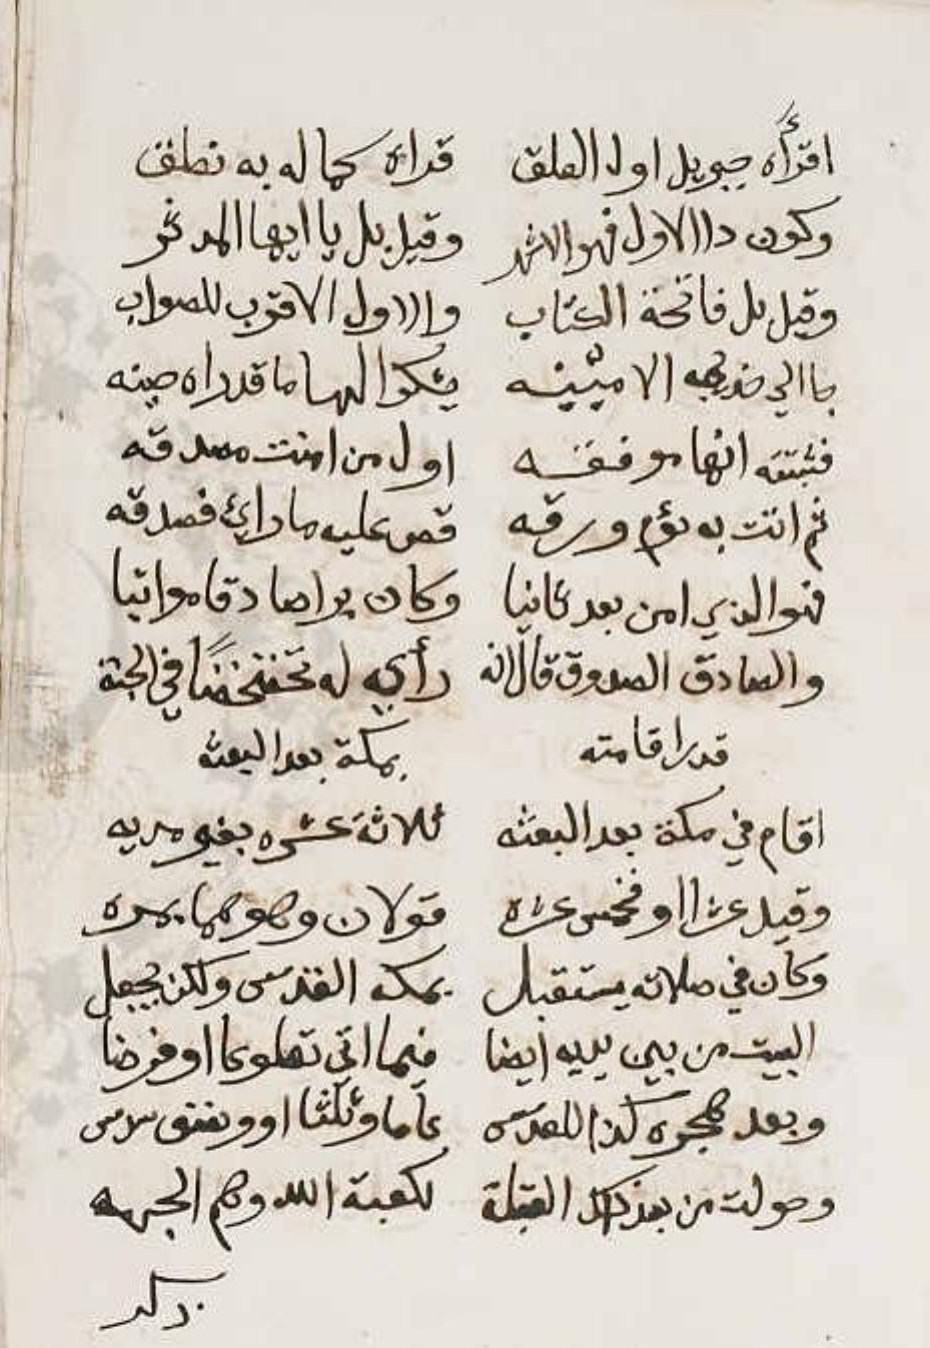 اقرأه جبريل اول العلق قراة كما له به نطق
وكون دا الاول فهو الاشهر وقيل بل يا ايها المدثر
وقيل بل فاتحة الكتاب والاول الاقرب للصواب
جا الي خديجه الامينه يشكوا لها ما قد راه حينه
فثبتته انها موفقه اول من امنت مصدقه
ثم اتت به تؤم ورقه قص عليه ما رائ فصدقه
فهو الذي امن بعد ثانيا وكان برا صادقا مواتيا
والصادق الصدوق قال انه رأي له تخضخضًا في الجنة
قدر اقامته بمكة بعد البعثه
اقام في مكة بعد البعثه ثلاثة عشره بغير مريه
وقيل عشرا او فخمس عشره قولان وهوهما بمره
وكان في صلاته يستقبل بمكه القدس ولكن يجعل
البيت من بين يديه ايضا فيما اتي تطوعا او فرضا
وبعد هجره كذا للقدس عاما وثلثا او ونصف سدس
وحولت من بعد ذلك القبلة لكعبة الله وهم الجهه
ذكر